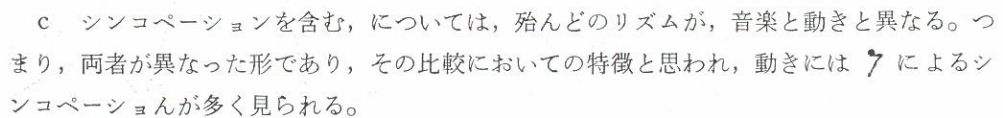 c シンコペーションを含む，については，殆んどのリズムが，音楽と動きと異なる。つ
まり，両者が異なった形であり，その比較においての特徴と思われ，動きには 𝄾 によるシ
ンコペーションんが多く見られる。